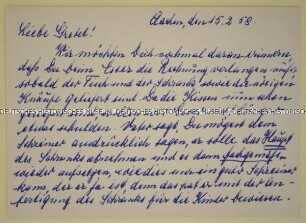 Aachen, den 15.2.58.
Liebe Gretel!
Wir möchten Dich nochmal daran erinnern
daß Du beim Esser die Rechnung verlangen mußt
sobald der Tisch und der Schrank sowie die nötigen
Knäufe geliefert sind. Da der Ihnen nun schon
etwas schulden. Vater sagt, Du mögest dem
Schreiner ausdrücklich sagen, er solle das Haupt
des Schranks abnehmen und es dann fachgemäß
wieder aufsetzen, wie dies nur ein guter Schreiner
kann, der er ja ist, denn das hat er mit der An-
fertigung des Schranks für die Kinder bewiesen.